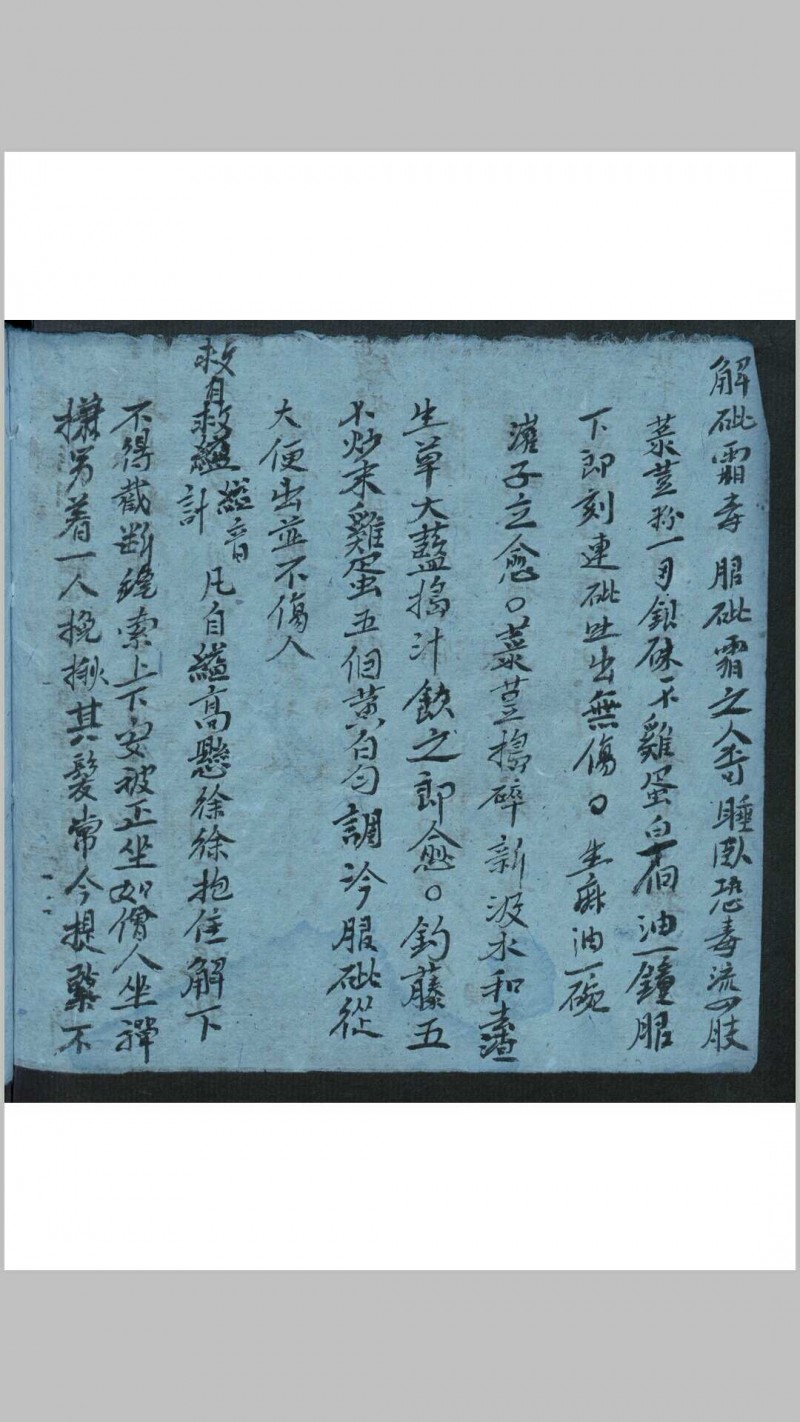 解砒霜毒 服砒霜之人奇睡臥恐毒流四肢
菉荳粉一刃銀硃一不雞蛋白一個油一鐘服
下即刻連砒吐出無傷○生麻油一碗
灌子立愈○菉荳搗碎新汲水和
生草大藍搗汁飲之即愈○釣藤五
不炒末雞蛋五個黃白匀調冷服砒從
大便出並不傷人
救自縊 縊音計 凡自縊高懸徐徐抱住解下
不得截斷繩索上下安被正坐如僧人坐禪
樣另着一人挽揪其髮常令提緊不